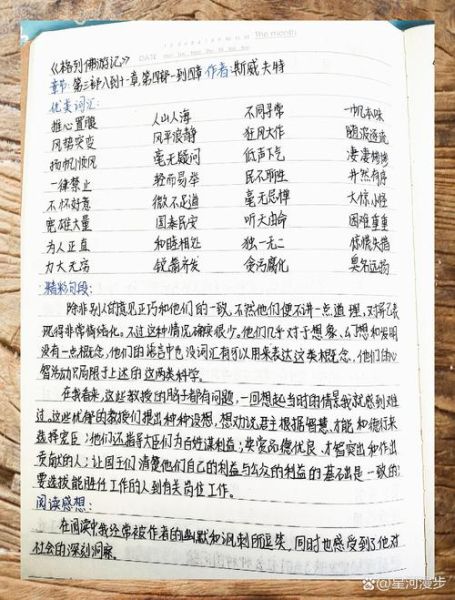 The month
DATE
《格列佛游记》
章节:第三部八到十一章,第四部一到四章 作者:斯威夫特
优美词汇:
推心置腹 人山人海 不同寻常 一帆
风势突变 风平浪静 狂风大作 随波逐流
扬帆 毫无疑问 低声下气 凄凄惨惨
一律禁止 轻而易举 民不聊生 井然有序
不怀好意 微不足道 毫无忌惮 大惊小怪
宽雄大量 国泰民安 听天由命 困难重重
为人正直 和睦相处 独一无二 惊慌失措
力大无穷 锐箭齐发 贪污腐化 臭名远扬
精彩句段:
除非别人的意见正巧和他们的一致,不然他们便不讲一点道理,对
现得非常情绪化。不过这种情况确实很少。他们几乎对于想象、幻想和发明
没有一点概念,他们的语言中也没词汇有可以用来表达这类概念,他们的心
智活动只局限于上述的这两类科学。
在我看来,这些教授的脑子都有问题,一回想起当时的情景我就感到难
过。这些忧郁的教授们提出种种设想,想劝说君主根据智慧、才能和德行来
选择宠臣;他们还指导大臣们为百姓谋利益;奖赏品德优良、才智突出和作出
贡献的人;让国王们清楚他们自己的利益与公众的利益的基础出是一致的;
要选拔能胜任工作的人到有关岗位工作。
阅读感想:
在阅读中,我经常被作者的幽默和讽刺所逗笑,同时也感受到了他对
社会的深刻洞察。
@星河漫步